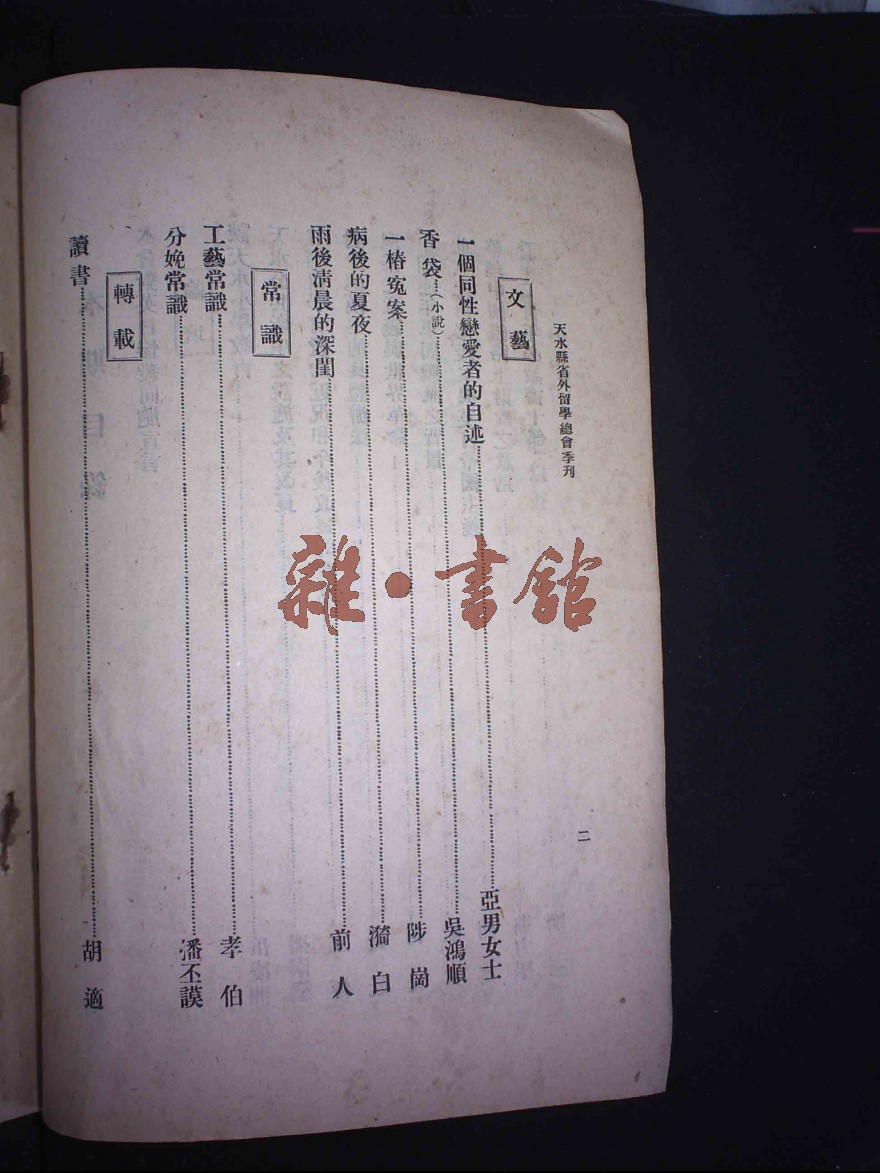 天水縣省外留學總會季刊
二
文藝
一個同性戀愛者的自述 亞男女士
香袋(小說) 吳鴻順
一樁冤案 陟崗
病後的夏夜 漪白
雨後清晨的深閨 前人
常識
工藝常識 孝伯
分娩常識 潘丕謨
轉載
讀書 胡適
雜·書館